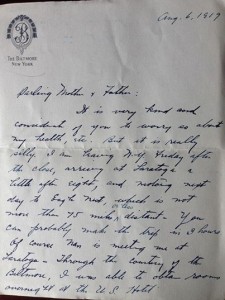 Aug. 6, 1919
B
THE BILTMORE
NEW YORK
Darling Mother & Father:
It is very kind and
considerate of you to worry so about
my health, etc. But it is really
silly. I am leaving N.Y. Friday after
the close, arriving at Saratoga a
little after eight, and motoring next
day to Eagle Nest, which is not
more than 75 miles distant. You
can probably make the trip in 3 hours
Of course Nan is meeting me at
Saratoga. Through the courtesy of the
Biltmore, I was able to obtain rooms
overnight at the U.S. Hotel.